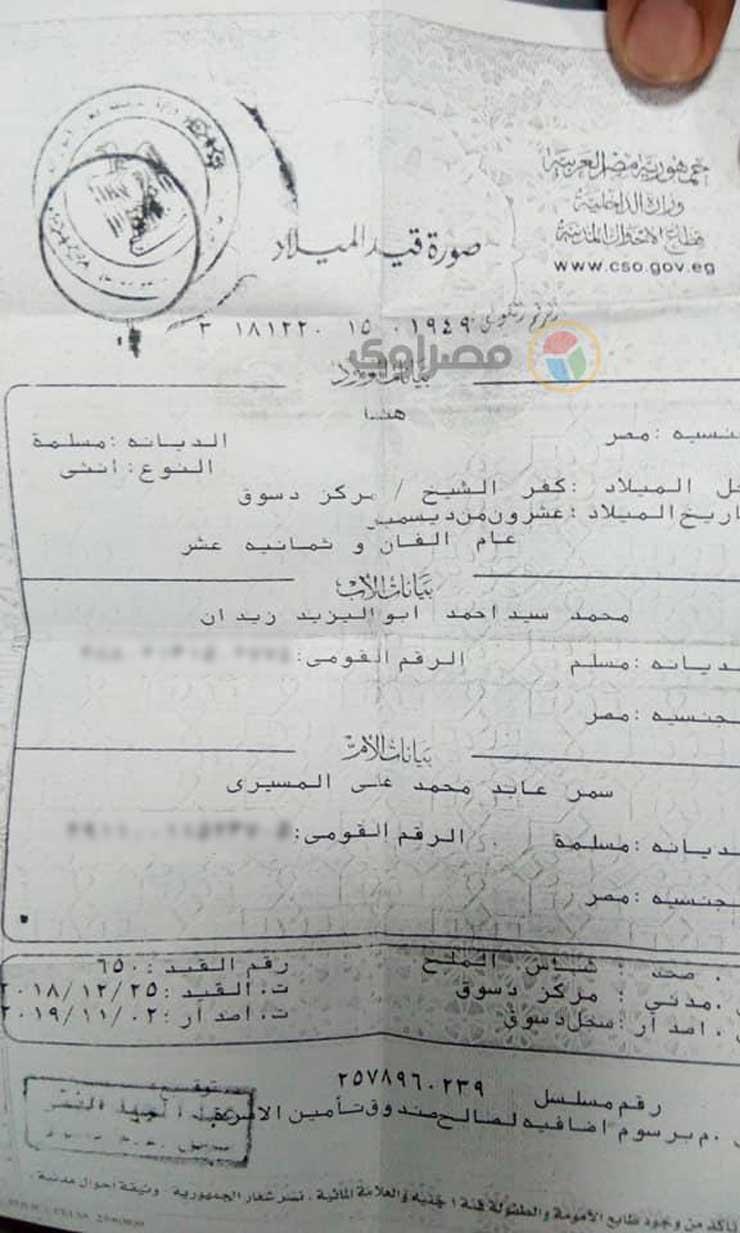 جمهورية مصر العربية
وزارة الداخلية
قطاع الأحوال المدنية
www.cso.gov.eg
صورة قيد الميلاد
٣ ١٨١٢٢٠ ١٥ ٠١٩٤٩
مصراوى
بيانات المولود
هنا
جنسيه : مصر
الديانه : مسلمة
النوع : انثى
حل الميلاد : كفر الشيخ / مركز دسوق
اريخ الميلاد : عشرون من ديسمبر
عام الفان و ثمانيه عشر
بيانات الأب
محمد سيداحمد ابواليزيد زيدان
ديانه : مسلم الرقم القومى :
جنسيه : مصر
بيانات الأم
سمر عابد محمد على المسيرى
ديانه : مسلمة الرقم القومى :
جنسيه : مصر
. صحه : شباس الملح رقم القيد : ٦٥٠
. مدنى : مركز دسوق ت. القيد : ٢٠١٨/١٢/٢٥
. اصدار : سجل دسوق ت. اصدار : ٢٠١٩/١١/٠٢
رقم مسلسل ٢٥٧٨٩٦٠٢٣٩
توقيع :
م برسوم اضافيه لصالح صندوق تأمين الاسرة
تأكد من وجود طابع الأمومة والطفولة فئة ١ جنيه والعلامة المائية . نسر شعار الجمهورية . وثيقة احوال مدنية .